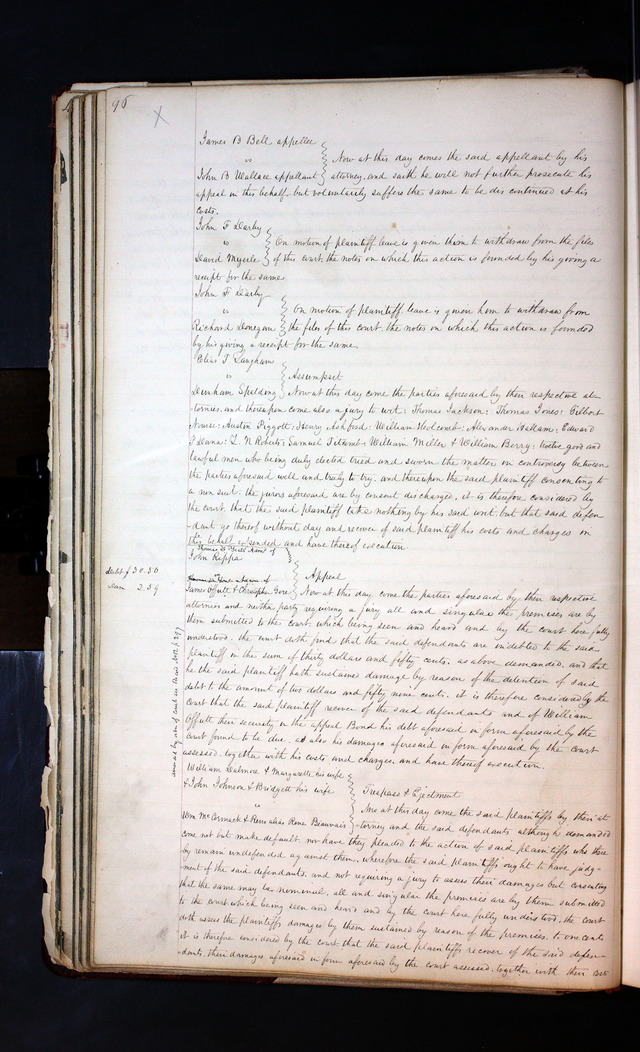 96
X
James B Bell appellee
vs
Now at this day comes the said appellant by his
John B Wallace appellant attorney, and saith he will not further prosecute his
appeal in this behalf but voluntarily suffers the same to be discontinued at his
costs.
John F Darby
vs
On motion of plaintiff leave is given them to withdraw from the files
David of this court the notes on which this action is founded by his giving a
receipt for the same
John F Darby
vs
On motion of plaintiff leave is given him to withdraw from
Richard Donegan the files of this court the notes on which this action is founded
by his giving a receipt for the same
T Langham
vs
Assumpsit
Now at this day come the parties aforesaid by their respective at-
tornies, and thereupon come also a jury to wit: Thomas Jackson: Thomas Jones: Gilbert
Nourse: Austin Piggott: Henry Ashford: William Holcomb: Alexander Bellame: Edward
L. N Roberts: Samuel Titcomb: William Miller & William Berry: twelve good and
lawful men who being duly elected tried and sworn the matter in controversy between
the parties aforesaid well and truly to try, and thereupon the said plaintiff consenting to
a non suit, the jurors aforesaid are by consent discharged, it is therefore considered by
the court, that the said plaintiff take nothing by his said writ but that said defen
-dant go thereof without day and recover of said plaintiff his costs and charges in
this behalf expended and have thereof execution
John Rippa
debt $30.50
Dam 2.59
Appeal
James Offutt & Christopher Gore Now at this day, come the parties aforesaid by their respective
attornies and neither party requiring a jury all and singular the premises are by
them submitted to the court, which being seen and heard and by the court here fully
understood. the court doth find that the said defendants are indebted to the said
plaintiff in the sum of thirty dollars and fifty cents, as above demanded, and that
he the said plaintiff hath sustained damage by reason of the detention of said
debt to the amount of two dollars and fifty nine cents. it is therefore considered by the
court that the said plaintiff recover of the said defendants and of William
Offutt their security in the appeal Bond his debt aforesaid in form aforesaid by the
court found to be due, as also his damages aforesaid in form aforesaid by the court
assessed, together with his costs and charges, and have thereof execution.
William & Margarett his wife
& John Johnson & Bridgett his wife
Trespass & Ejectment
vs
Now at this day come the said plaintiffs by their at-
Wm McCormack & Rene alias Rene Beauvais torney and the said defendants although demanded
come not but make default, nor have they pleaded to the action of said plaintiffs who there
by remain undefended against them, wherefore the said plaintiffs ought to have judg-
ment of the said defendants, and not requiring a jury to assess their damages but consenting
that the same may be nominal, all and singular the premises are by them submitted
to the court which being seen and heard and by the court here fully understood, the court
doth assess the plaintiffs damages by them sustained by reason of the premises, to one cent.
it is therefore considered by the court that the said plaintiffs recover of the said defen-
-dants, their damages aforesaid in form aforesaid by the court assessed, together with their costs